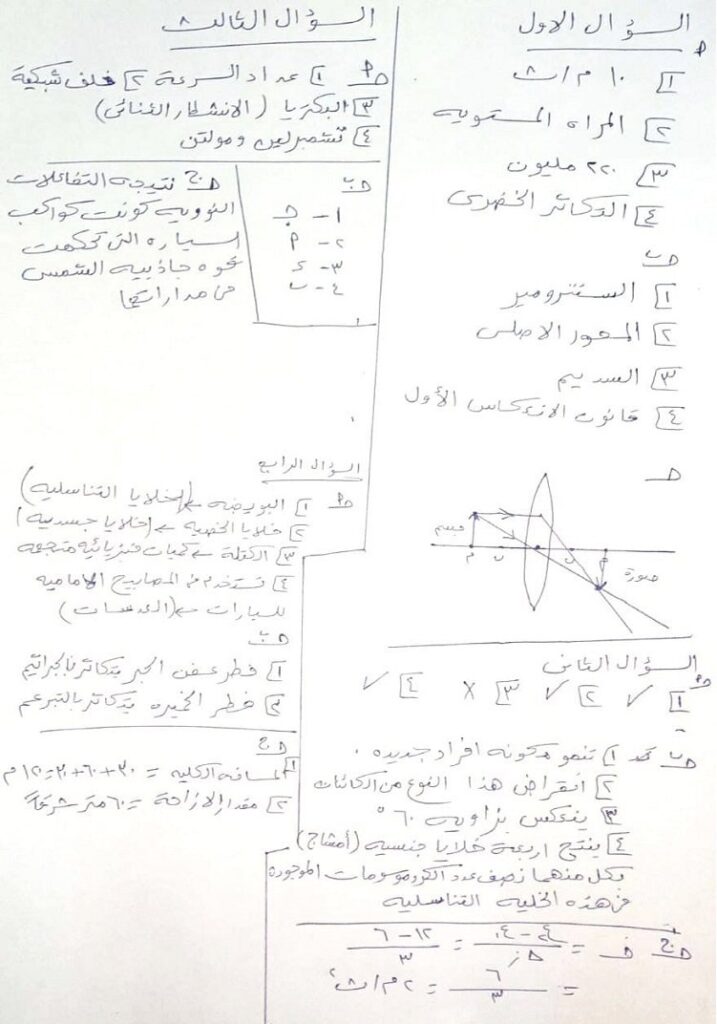 السؤال الاول
P
١ ١٠ م/ث
٢ المراه المستويه
٣ ٢٢٠ مليون
٤ التكاثر الخضرى
ب
١ السنترومير
٢ المحور الاصلى
٣ السديم
٤ قانون الانعكاس الأول
جـ
جسم
صورة
السؤال الثانى
P ١ ✓ ٢ ✓ ٣ X ٤ ✓
ب ١ تنمو مكونه افراد جديده .
٢ انقراض هذا النوع من الكائنات
٣ ينعكس بزاويه ٦٠°
٤ ينتج اربعة خلايا جنسيه (أمشاج)
بكل منهما نصف عدد الكروموسومات الموجوده
فى هذه الخليه التناسليه
جـ = ع٢ - ع١ / Δز = ١٢ - ٦ / ٣
= ٦ / ٣ = ٢ م/ث٢
السؤال الثالث
P ١ عداد السرعة ٢ خلف شبكية
٣ البكتريا (الانشطار الثنائى)
٤ تشمبرلين ومولتن
ب
١- جـ
٢- P
٣- ء
٤- ب
جـ نتيجه التفاعلات
النوويه كونت كواكب
السياره التى تحكمت
جاذبيه الشمس
فى مداراتها
السؤال الرابع
P ١ البويضه ← (الخلايا التناسليه)
٢ خلايا الخصيه ← (خلايا جسديه)
٣ الكتلة ← كميات فيزيائيه متجهه
٤ تستخدم فى المصابيح الاماميه
للسيارات ← (العدسات)
ب
١ فطر عفن الخبز يتكاثر بالجراثيم
٢ فطر الخميره يتكاثر بالتبرعم
جـ
١ المسافه الكليه = ٣٠+٦٠+٣٠ = ١٢٠ م
٢ مقدار الإزاحة = ٦٠ متر شرقاً